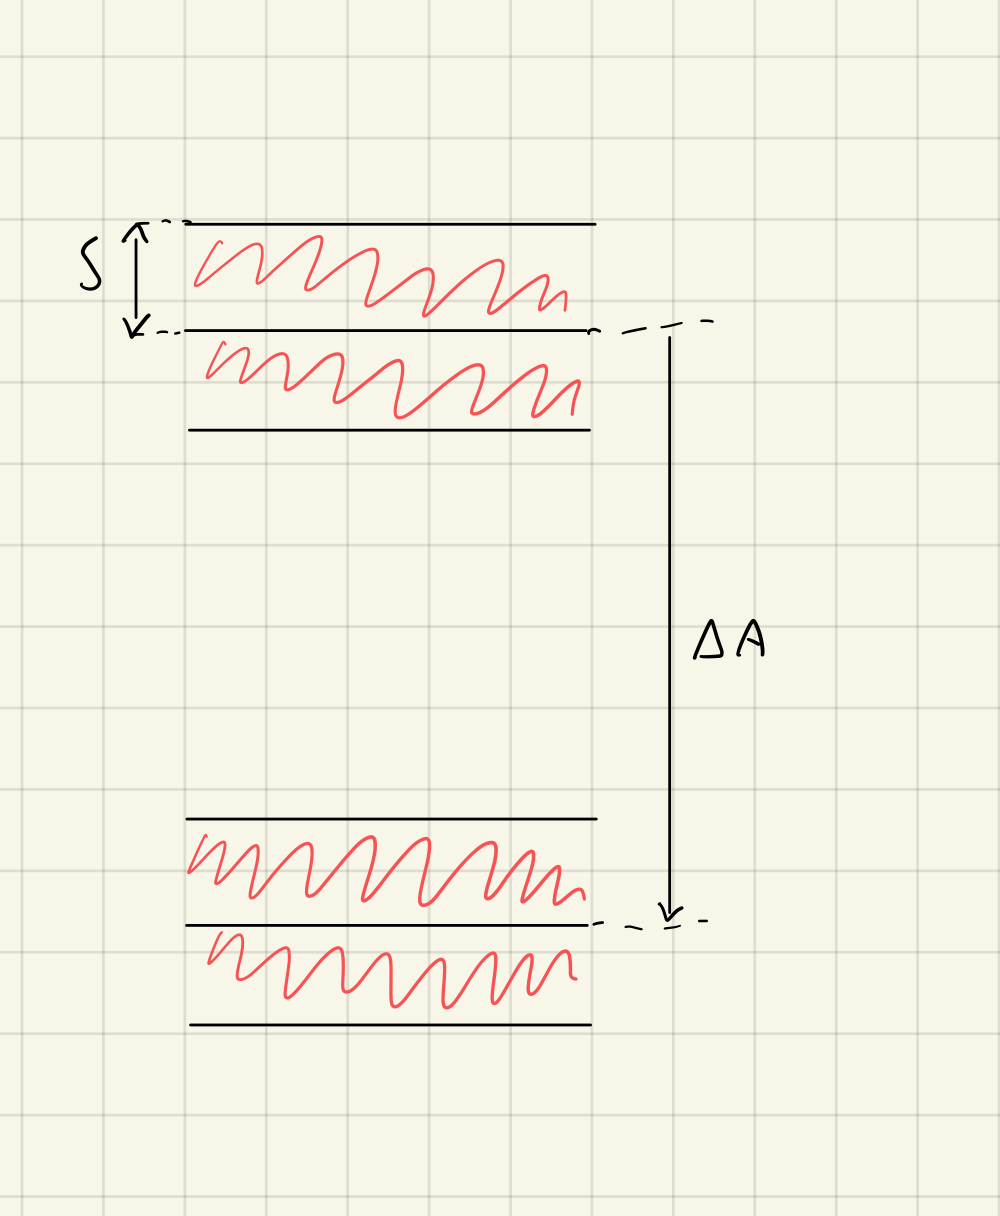 S
ΔA